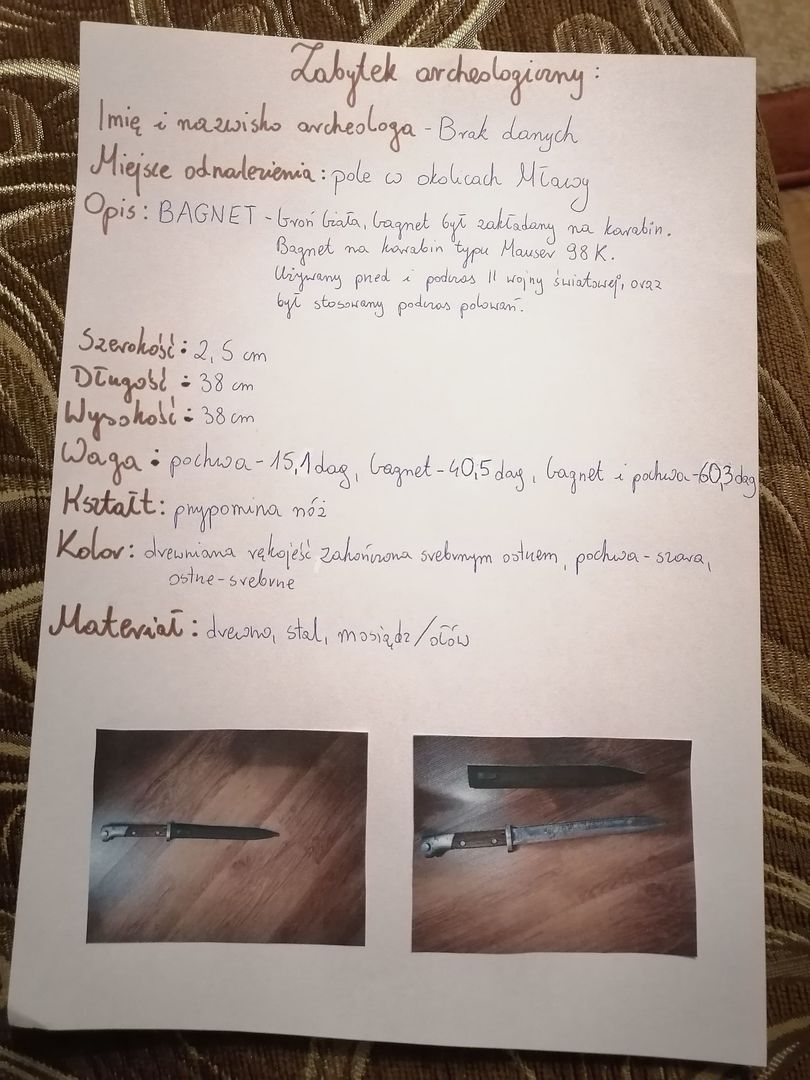 Zabytek archeologiczny:
Imię i nazwisko archeologa - Brak danych
Miejsce odnalezienia: pole w okolicach Mławy
Opis: BAGNET - broń biała, bagnet był zakładany na karabin.
Bagnet na karabin typu Mauser 98K.
Używany przed i podczas II wojny światowej, oraz
był stosowany podczas polowań.
Szerokość: 2,5 cm
Długość: 38 cm
Wysokość: 38 cm
Waga: pochwa - 15,1 dag, bagnet - 40,5 dag, bagnet i pochwa - 60,3 dag
Kształt: przypomina nóż
Kolor: drewniana rękojeść zakończona srebrnym ostrzem, pochwa - szara,
ostrze - srebrne
Materiał: drewno, stal, mosiądz/ołów